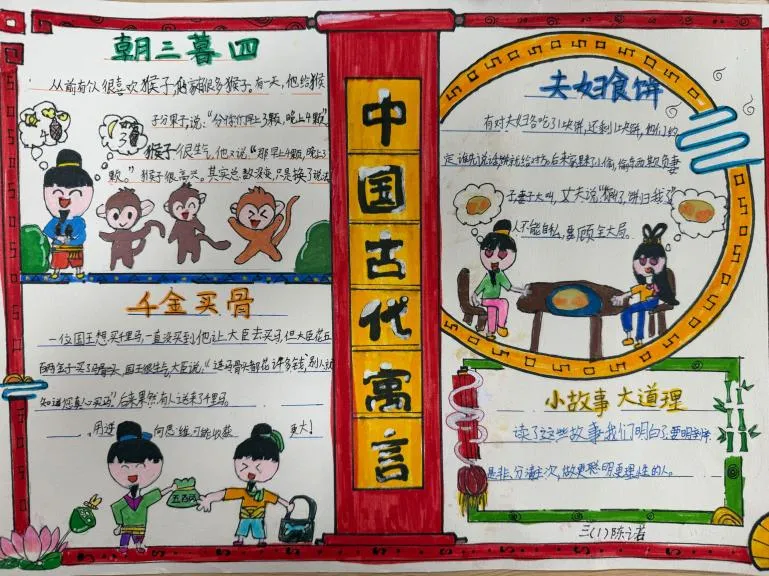 朝三暮四
从前有个人很喜欢猴子,养很多猴子。有一天,他给猴
子分果子,说:“分你们早上3颗,晚上4颗”
猴子很生气,他又说:“那早上4颗,晚上3
颗。”猴子很高兴。其实总数没变,只是换了说法
千金买骨
一位国王想买千里马,一直没买到他让大臣去买马,但大臣花五
百两金子买了马骨头,国王很生气,大臣说:“连马骨头都花许多钱,别人就
知道您真心买马”后来果然有人送来了千里马。
用逆向思维可能收获更大!
五百两
中国古代寓言
夫妇食饼
有对夫妇各吃了1块饼,还剩1块饼,他们约
定谁先说话饼就给对方。后来家里来了小偷,偷东西欺负妻
子,妻子大叫,丈夫说“饼归我了”
人不能自私,要顾全大局。
小故事 大道理
读了这些故事,我们明白了要明辨
是非,分清主次,做更聪明更理性的人。
三(1)陈